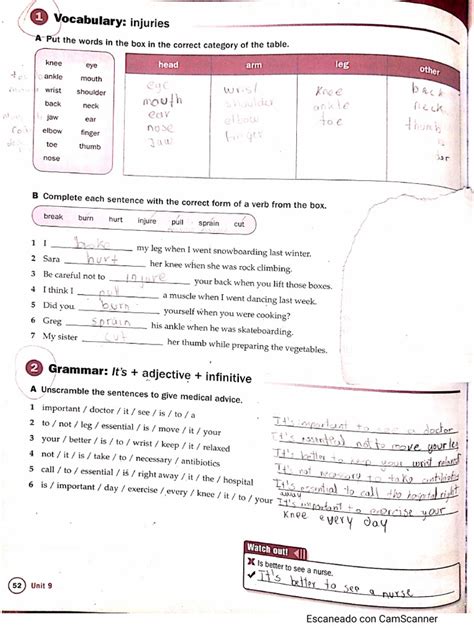 1 Vocabulary: injuries
A Put the words in the box in the correct category of the table.
knee eye
ankle mouth
wrist shoulder
back neck
jaw ear
elbow finger
toe thumb
nose
head arm leg other
eye wrist knee back
mouth shoulder ankle neck
ear elbow toe thumb
nose finger
jaw
B Complete each sentence with the correct form of a verb from the box.
break burn hurt injure pull sprain cut
1 I broke my leg when I went snowboarding last winter.
2 Sara hurt her knee when she was rock climbing.
3 Be careful not to injure your back when you lift those boxes.
4 I think I pull a muscle when I went dancing last week.
5 Did you burn yourself when you were cooking?
6 Greg sprain his ankle when he was skateboarding.
7 My sister cut her thumb while preparing the vegetables.
2 Grammar: It's + adjective + infinitive
A Unscramble the sentences to give medical advice.
1 important / doctor / it / see / is / to / a It's important to see a doctor
2 to / not / leg / essential / is / move / it / your It's essential not to move your leg
3 your / better / is / to / wrist / keep / it / relaxed It's better to keep your wrist relaxed
4 not / it / is / take / to / necessary / antibiotics It's not necessary to take antibiotics
5 call / to / essential / is / right away / it / the / hospital It's essential to call the hospital right
away
6 is / important / day / exercise / every / knee / it / to / your It's important to exercise your
knee every day
Watch out!
Is better to see a nurse.
It's better to see a nurse
52 Unit 9
Escaneado con CamScanner